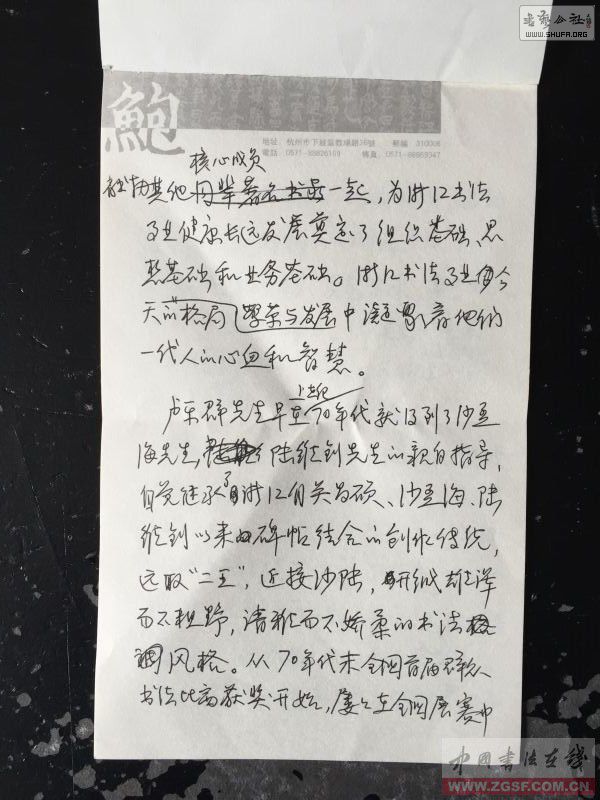 書藝公社
WWW.SHUFA.ORG
鮑
地址：杭州市下城區教場路26號 郵編 310006
電話：0571-88826169 傳真：0571-86959347
核心成员
其他 一起，为浙江书法
事业健康长远发展奠定了组织基础、思
想基础和业务基础。浙江书法事业今
天的格局 繁荣与发展中凝聚着他们
一代人的心血和智慧。
上世纪
卢乐群先生早在70年代就得到了沙孟
海先生 陆维钊先生的亲自指导，
自觉继承了浙江自吴昌硕、沙孟海、陆
维钊以来碑帖结合的创作传统，
远取"二王"，近接沙陆，形成雄浑
而不粗野，清雅而不娇柔的书法
风格。从70年代末全国首届群众
书法比赛获奖开始，屡屡在全国展赛中
中国书法在线
WWW.ZGSF.COM.CN